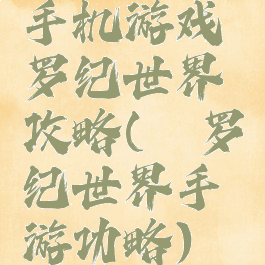 手机游戏
罗纪世界
攻略( 罗
纪世界手
游功略)